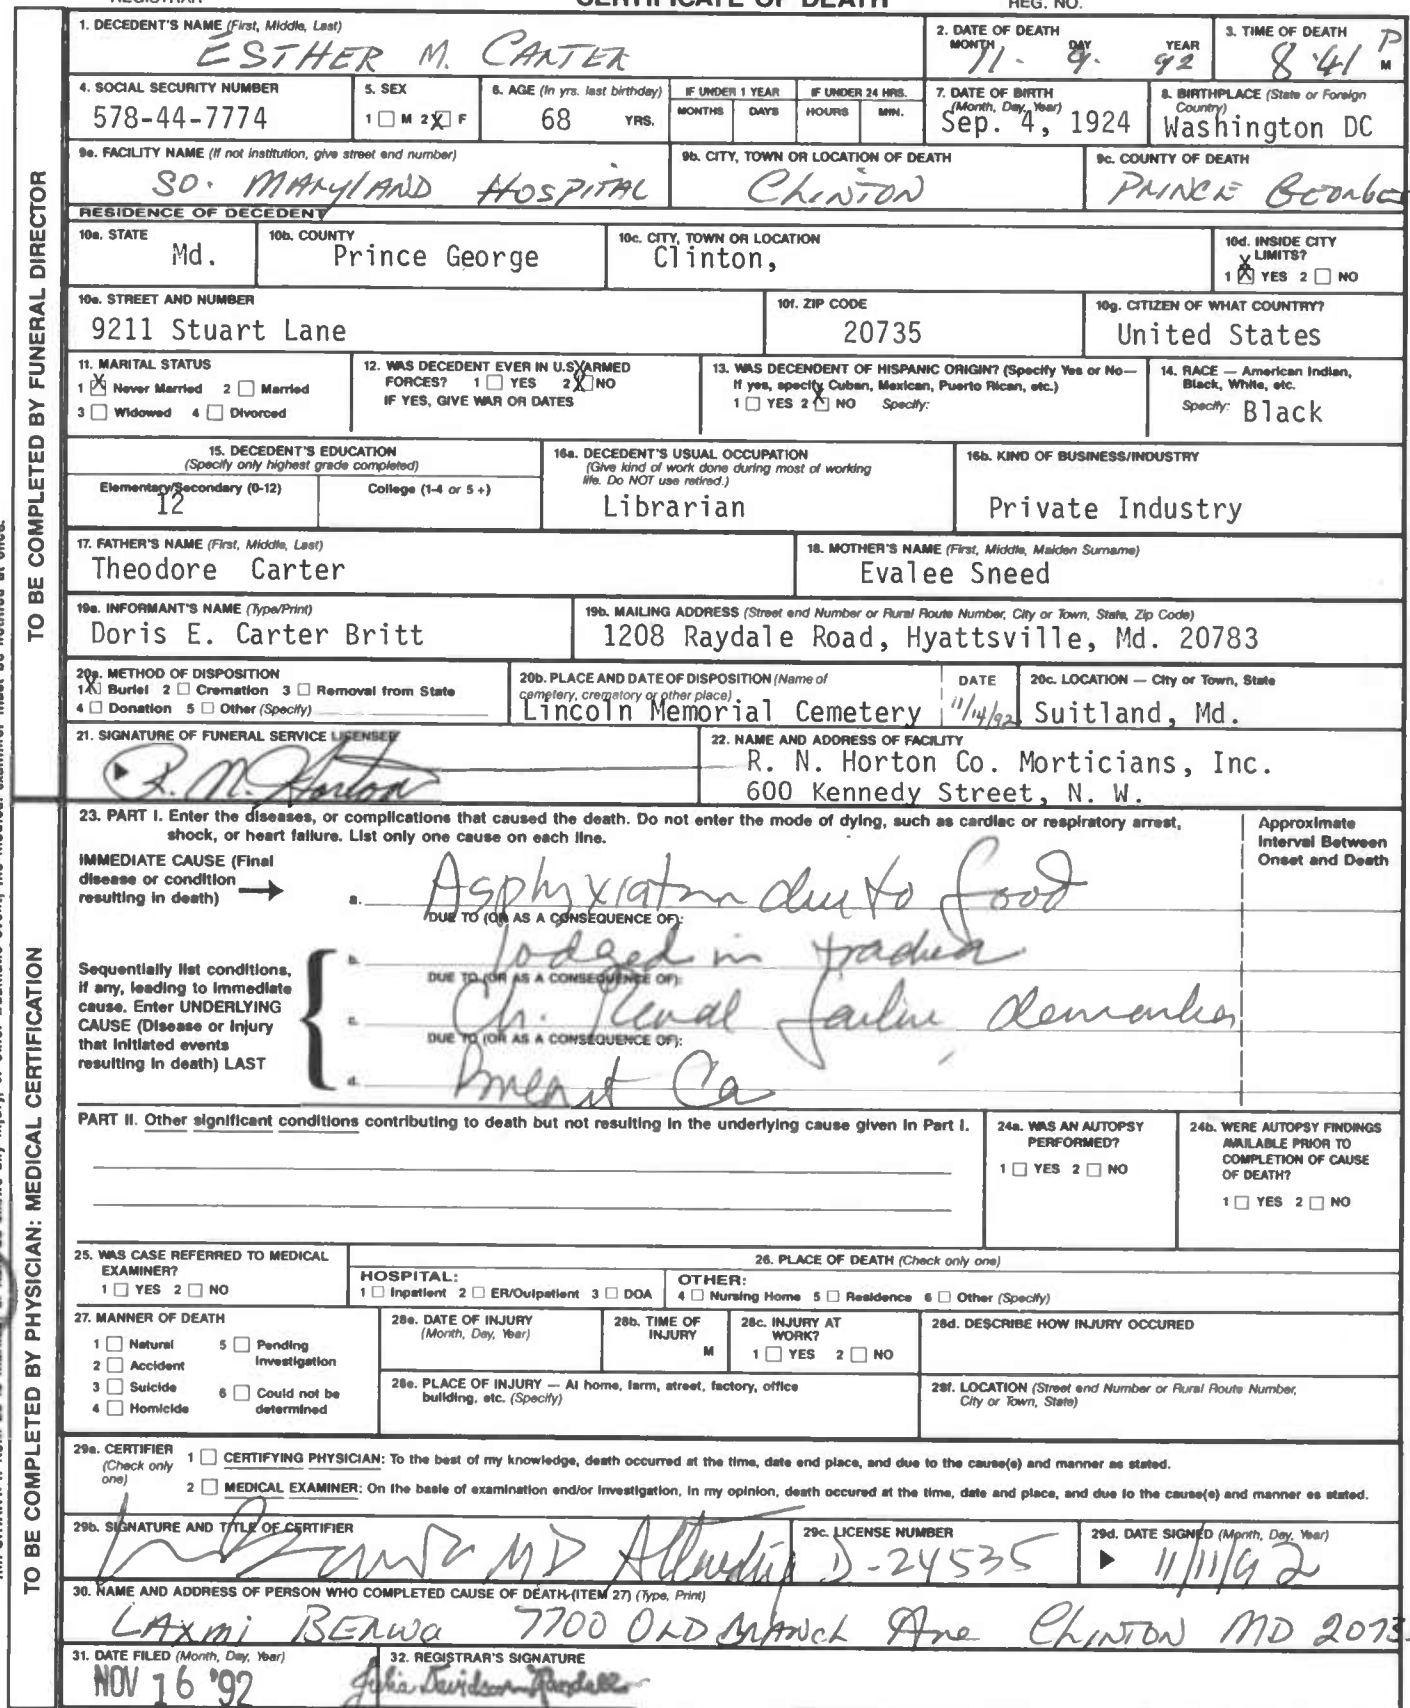 CERTIFICATE OF DEATH
REG. NO.
1. DECEDENT'S NAME (First, Middle, Last)
ESTHER M. CARTER
2. DATE OF DEATH
MONTH DAY YEAR
11. 9. 92
3. TIME OF DEATH
8:41 P M
4. SOCIAL SECURITY NUMBER
578-44-7774
5. SEX
1 M 2 X F
6. AGE (In yrs. last birthday)
68 YRS.
IF UNDER 1 YEAR
MONTHS DAYS
IF UNDER 24 HRS.
HOURS MIN.
7. DATE OF BIRTH
(Month, Day, Year)
Sep. 4, 1924
8. BIRTHPLACE (State or Foreign
Country)
Washington DC
9a. FACILITY NAME (If not institution, give street and number)
SO. MARYLAND HOSPITAL
9b. CITY, TOWN OR LOCATION OF DEATH
CLINTON
9c. COUNTY OF DEATH
PRINCE GEORGES
RESIDENCE OF DECEDENT
10a. STATE
Md.
10b. COUNTY
Prince George
10c. CITY, TOWN OR LOCATION
Clinton,
10d. INSIDE CITY
LIMITS?
1 X YES 2 NO
10e. STREET AND NUMBER
9211 Stuart Lane
10f. ZIP CODE
20735
10g. CITIZEN OF WHAT COUNTRY?
United States
11. MARITAL STATUS
1 X Never Married 2 Married
3 Widowed 4 Divorced
12. WAS DECEDENT EVER IN U.S. ARMED
FORCES? 1 YES 2 X NO
IF YES, GIVE WAR OR DATES
13. WAS DECENDENT OF HISPANIC ORIGIN? (Specify Yes or No—
If yes, specify Cuban, Mexican, Puerto Rican, etc.)
1 YES 2 X NO Specify:
14. RACE — American Indian,
Black, White, etc.
Specify: Black
15. DECEDENT'S EDUCATION
(Specify only highest grade completed)
Elementary/Secondary (0-12)
12
College (1-4 or 5 +)
16a. DECEDENT'S USUAL OCCUPATION
(Give kind of work done during most of working
life. Do NOT use retired.)
Librarian
16b. KIND OF BUSINESS/INDUSTRY
Private Industry
17. FATHER'S NAME (First, Middle, Last)
Theodore Carter
18. MOTHER'S NAME (First, Middle, Maiden Surname)
Evalee Sneed
19a. INFORMANT'S NAME (Type/Print)
Doris E. Carter Britt
19b. MAILING ADDRESS (Street and Number or Rural Route Number, City or Town, State, Zip Code)
1208 Raydale Road, Hyattsville, Md. 20783
20a. METHOD OF DISPOSITION
1 X Burial 2 Cremation 3 Removal from State
4 Donation 5 Other (Specify)
20b. PLACE AND DATE OF DISPOSITION (Name of
cemetery, crematory or other place)
Lincoln Memorial Cemetery
DATE
11/14/92
20c. LOCATION — City or Town, State
Suitland, Md.
21. SIGNATURE OF FUNERAL SERVICE LICENSEE
R. N. Horton
22. NAME AND ADDRESS OF FACILITY
R. N. Horton Co. Morticians, Inc.
600 Kennedy Street, N. W.
TO BE COMPLETED BY FUNERAL DIRECTOR
23. PART I. Enter the diseases, or complications that caused the death. Do not enter the mode of dying, such as cardiac or respiratory arrest,
shock, or heart failure. List only one cause on each line.
Approximate
Interval Between
Onset and Death
IMMEDIATE CAUSE (Final
disease or condition
resulting in death)
a. Asphyxiation due to food
DUE TO (OR AS A CONSEQUENCE OF):
b. lodged in trachea
DUE TO (OR AS A CONSEQUENCE OF):
c. Ch. Renal failure dementia
DUE TO (OR AS A CONSEQUENCE OF):
d. Breast Ca
Sequentially list conditions,
if any, leading to immediate
cause. Enter UNDERLYING
CAUSE (Disease or injury
that initiated events
resulting in death) LAST
PART II. Other significant conditions contributing to death but not resulting in the underlying cause given in Part I.
24a. WAS AN AUTOPSY
PERFORMED?
1 YES 2 NO
24b. WERE AUTOPSY FINDINGS
AVAILABLE PRIOR TO
COMPLETION OF CAUSE
OF DEATH?
1 YES 2 NO
25. WAS CASE REFERRED TO MEDICAL
EXAMINER?
1 YES 2 NO
26. PLACE OF DEATH (Check only one)
HOSPITAL:
1 Inpatient 2 ER/Outpatient 3 DOA
OTHER:
4 Nursing Home 5 Residence 6 Other (Specify)
27. MANNER OF DEATH
1 Natural 5 Pending
Investigation
2 Accident
3 Suicide 6 Could not be
determined
4 Homicide
28a. DATE OF INJURY
(Month, Day, Year)
28b. TIME OF
INJURY
M
28c. INJURY AT
WORK?
1 YES 2 NO
28d. DESCRIBE HOW INJURY OCCURED
28e. PLACE OF INJURY — At home, farm, street, factory, office
building, etc. (Specify)
28f. LOCATION (Street and Number or Rural Route Number,
City or Town, State)
29a. CERTIFIER
(Check only
one)
1 CERTIFYING PHYSICIAN: To the best of my knowledge, death occurred at the time, date and place, and due to the cause(s) and manner as stated.
2 MEDICAL EXAMINER: On the basis of examination and/or investigation, in my opinion, death occured at the time, date and place, and due to the cause(s) and manner as stated.
29b. SIGNATURE AND TITLE OF CERTIFIER
MD Attending
29c. LICENSE NUMBER
D-24535
29d. DATE SIGNED (Month, Day, Year)
11/11/92
30. NAME AND ADDRESS OF PERSON WHO COMPLETED CAUSE OF DEATH (ITEM 27) (Type, Print)
LAXMI BERWA 7700 OLD BRANCH Ave CLINTON MD 2073
31. DATE FILED (Month, Day, Year)
NOV 16 '92
32. REGISTRAR'S SIGNATURE
Julia Davidson-Randall
TO BE COMPLETED BY PHYSICIAN: MEDICAL CERTIFICATION